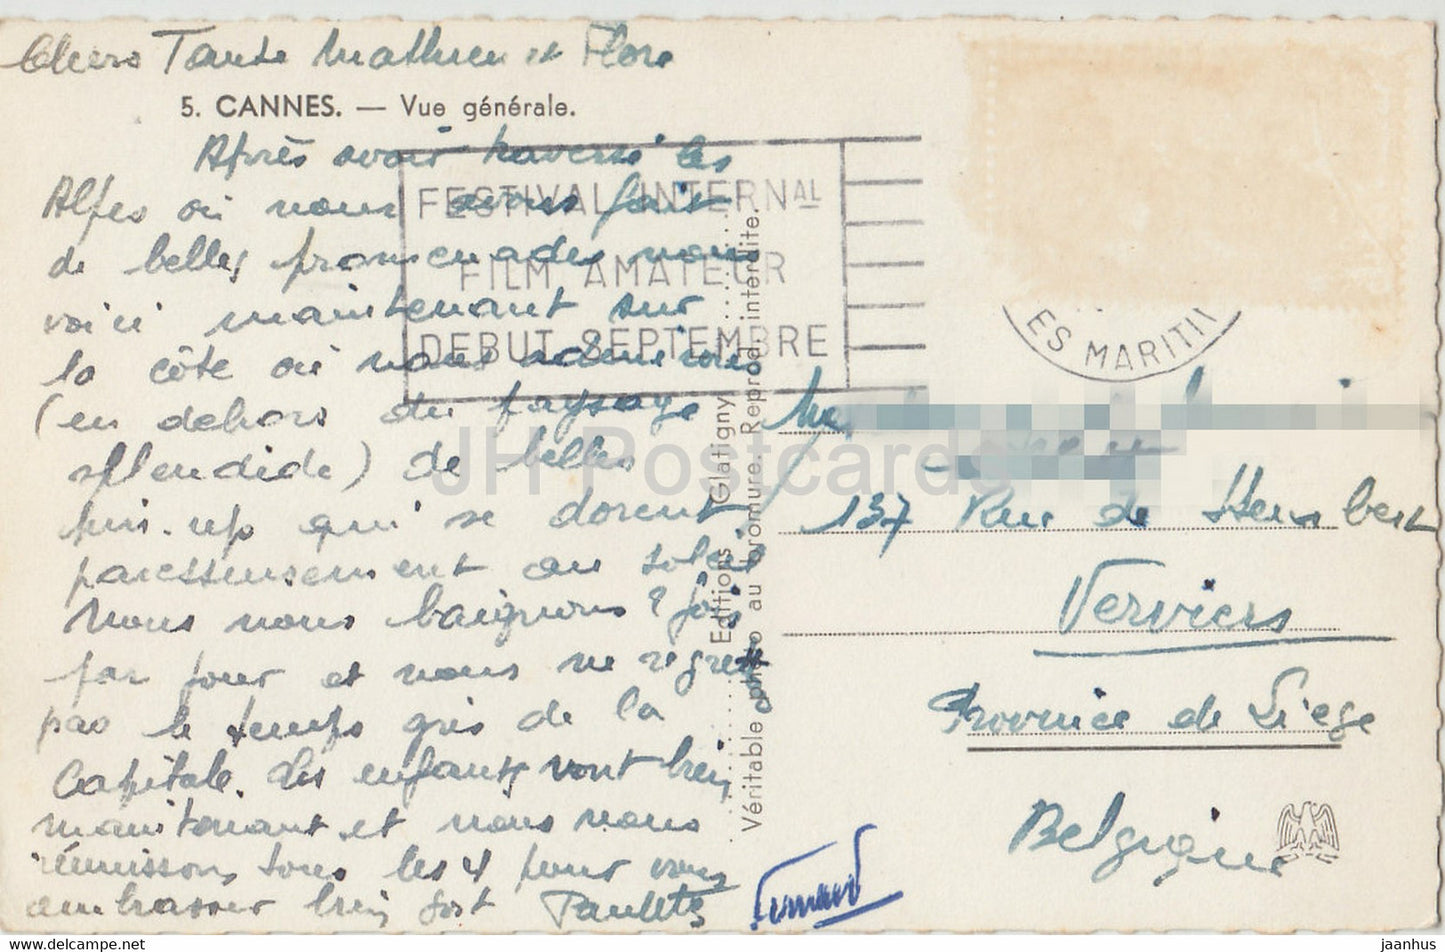 Chers Tante Mathieu et Flore
5. CANNES. — Vue générale.
Après avoir traversé les
Alpes où nous avons fait
de belles promenades nous
voici maintenant sur
la côte où nous admirons
(en dehors du paysage
splendide) de belles
pin-up qui se dorent
paresseusement au soleil
Nous nous baignons 2 fois
par jour et nous ne regrett
pas le temps gris de la
Capitale. Les enfants vont bien
maintenant et nous nous
réunissons tous les 4 pour vous
embrasser bien fort Paulette
Fernand
FESTIVAL INTERNAL
FILM AMATEUR
DEBUT SEPTEMBRE
ES MARITI
Editions Glatigny
Véritable photo au bromure. Reprod. interdite.
137 Rue de
Verviers
Province de Liège
Belgique
JH Postcards
https://www.hippostcard.com/store/jaanhus